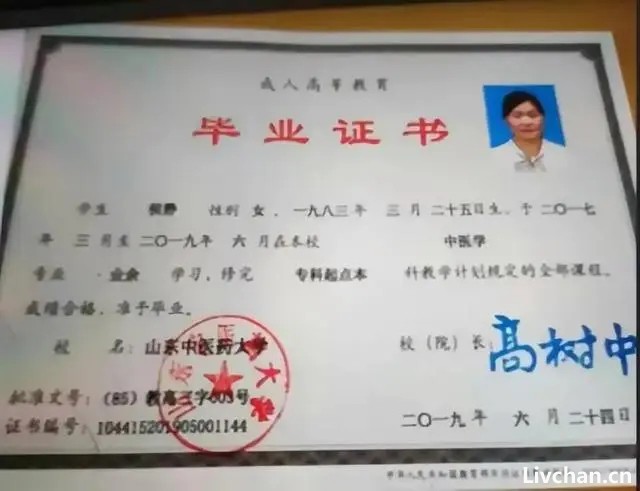 成人高等教育
毕业证书
学生 侯静 性别 女，一九八三年 三 月 二十五日生，于 二〇一七
年 三 月至 二〇一九年 六 月在本校 中医学
专业 业余 学习，修完 专科起点本 科教学计划规定的全部课程，
成绩合格，准予毕业。
校 名：山东中医药大学
校（院）长：高树中
批准文号：（85）教高三字003号
证书编号：104415201905001144
二〇一九年 六 月 二十四日
Livchan.cn